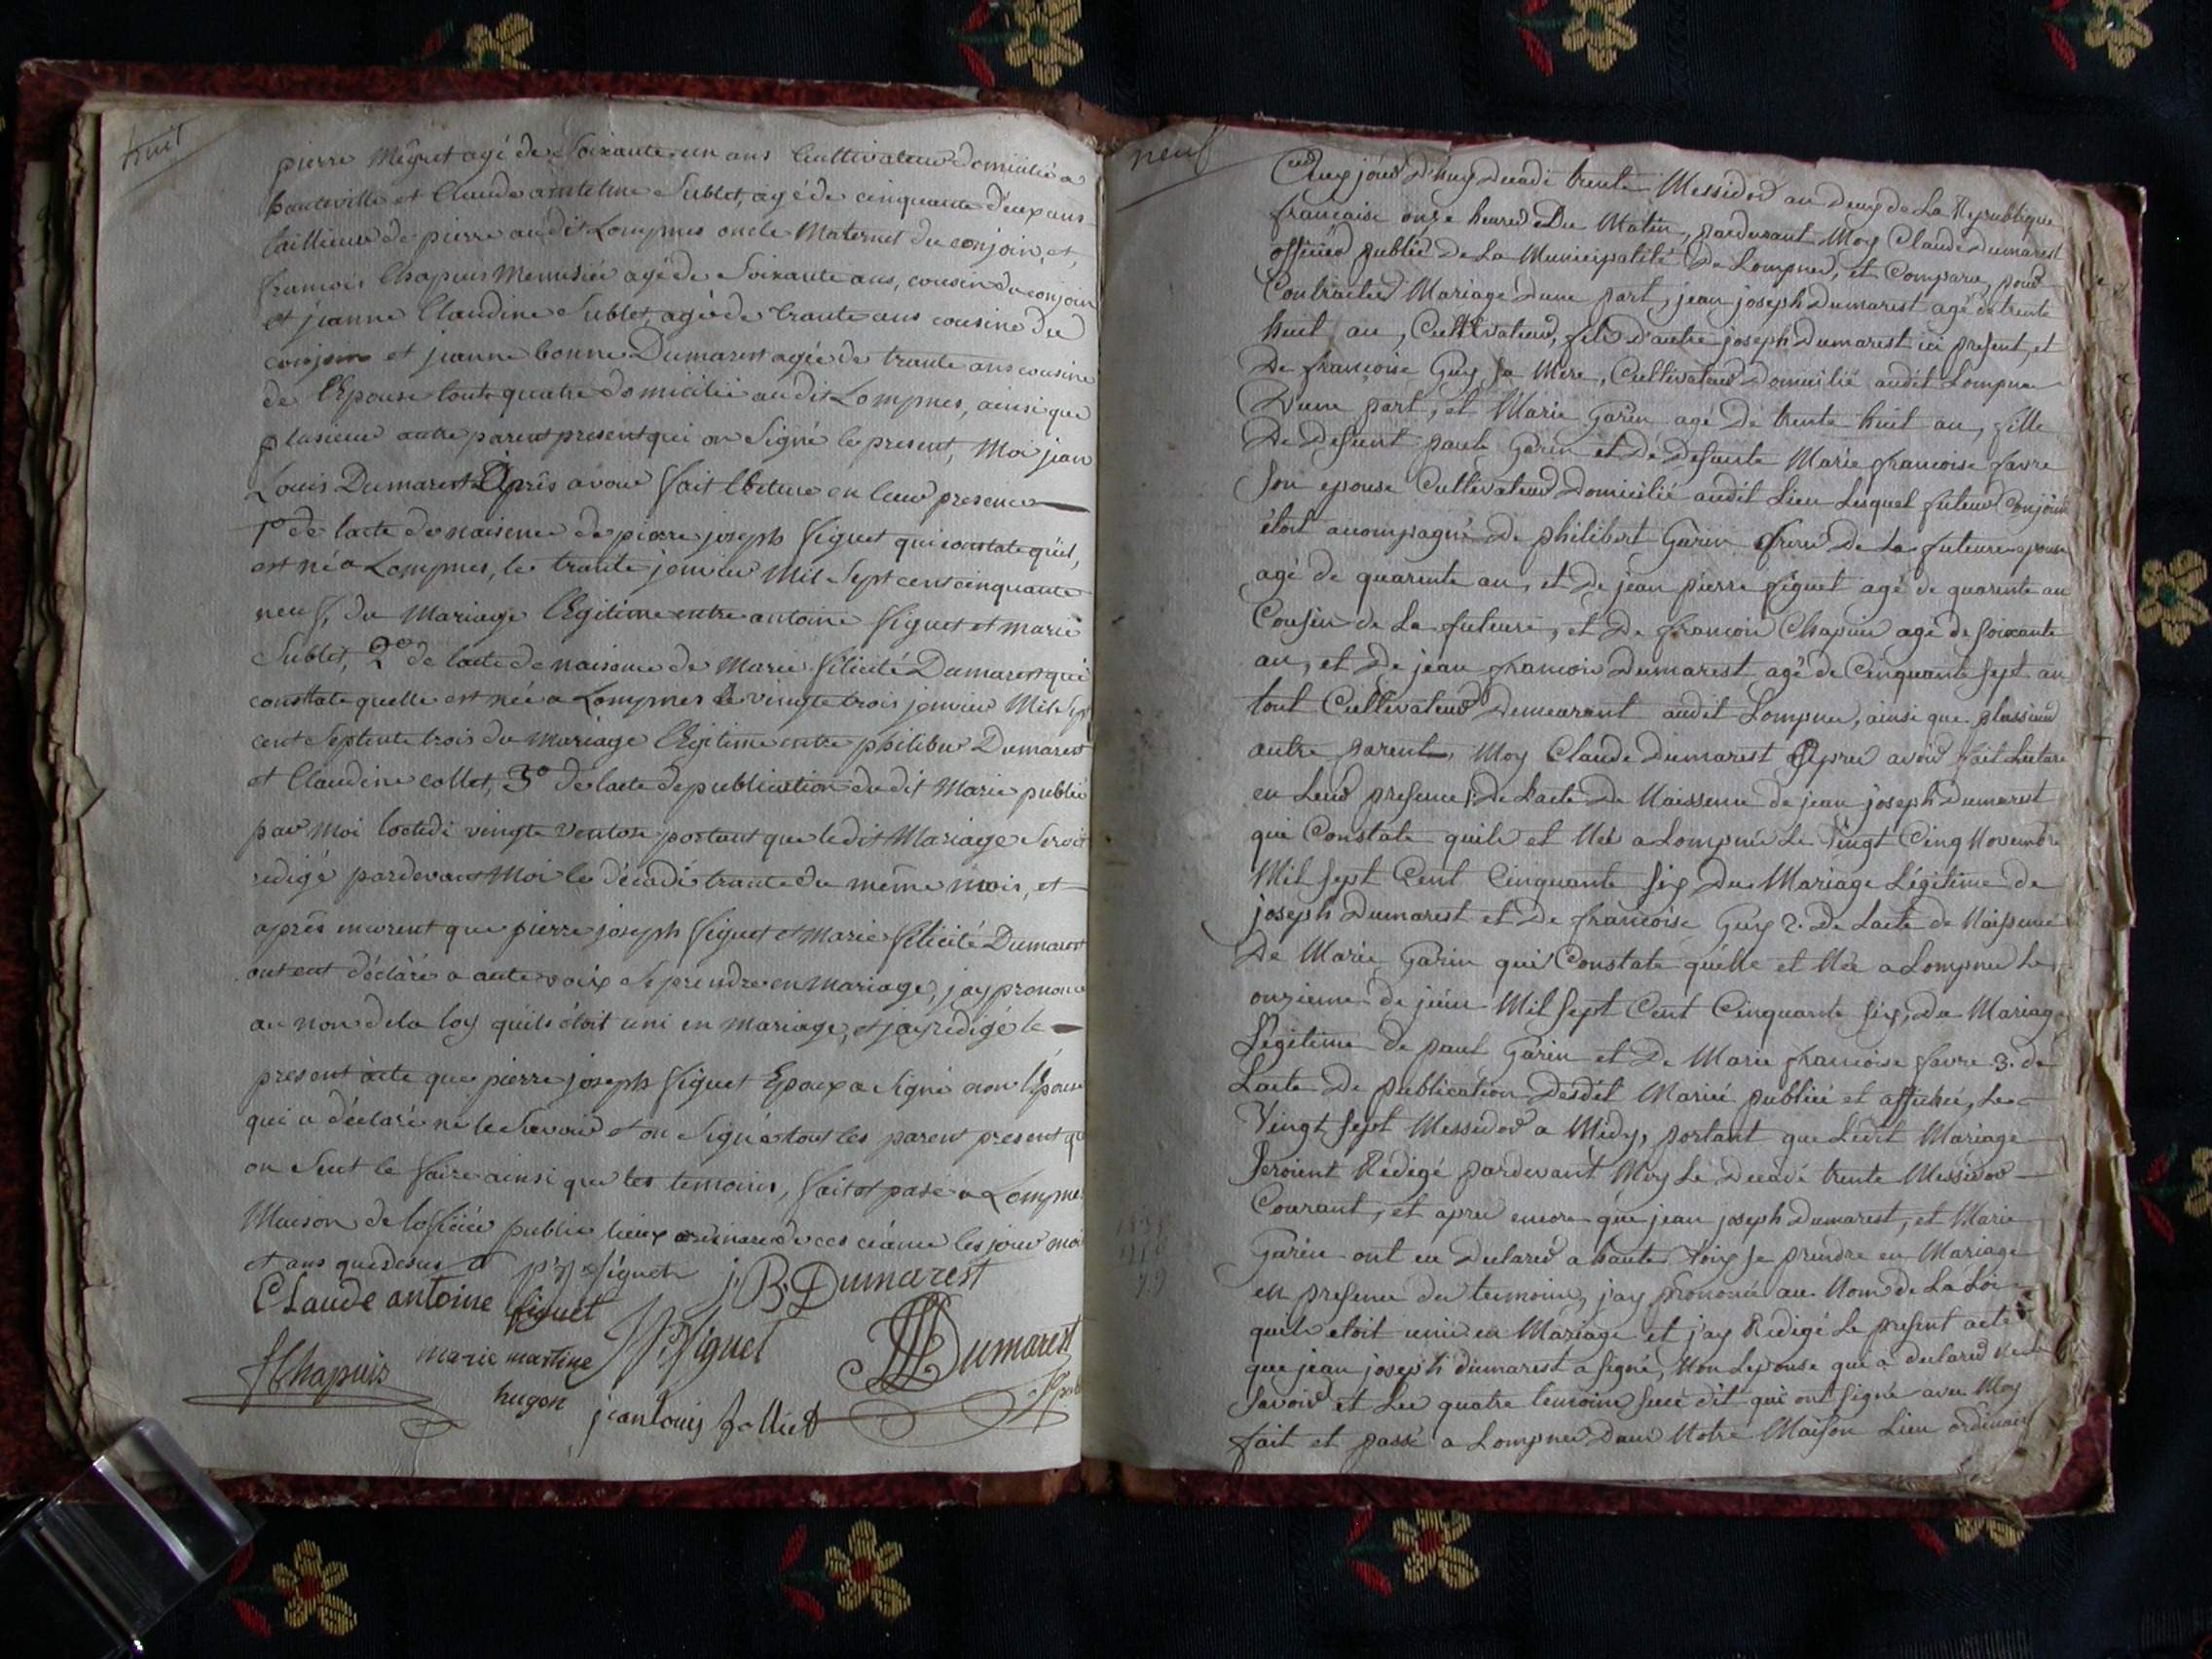 huit
pierre Megret agé de Soixante un ans Cultivateur domicilié a
hauteville et Claude anteline Sublet, agé de cinquante deux ans
tallieur de pierre audit Lompnes oncle Maternel du conjoin, et
francois Chapuis Menusiée agé de Soixante ans, cousin du conjoin
et jeanne Claudine Sublet, agé de trante ans cousine du
conjoin et jeanne bonne Dumarest agée de trante ans cousine
de l'Epouse tout quatre domicilié audit Lompnes, ainsi que
plusieur autre parent present qui on Signé le present, Moi jean
Louis Dumarest Après avoir fait lecture en leur presence
1º de lacte de naisence de pierre joseph figuet qui constate qu'il
est né a Lompnes, le trante janvier Mil Sept cent cinquante
neuf, du Mariage legitime entre antoine figuet et marie
Sublet, 2º de lacte de naisence de Marie felicité Dumarest qui
consttate quelle est née a Lompnes le vingte trois janvier Mil Sept
cent Septente trois du mariage legitime entre philiber Dumarest
et Claudine collet, 3º de lacte de publication du dit Marie publié
par Moi loctedi vingte Ventose portant que ledit Mariage Seroit
redigé pardevant Moi le décadi trante du même mois, et
après encorent que pierre joseph figuet et Marie felicité Dumarest
ont ent déclaré a aute voix se prendre en mariage, jay prononcé
au non de la loy quils étoit uni en mariage, et jay redigé le
present acte que pierre joseph figuet Epoux a Signé non l'épouse
qui a déclaré ne le Savoir et on Signé tout les parent present qu
on Seut le faire ainsi que les temoins, fait et pasé a Lompnes
Maison de lofficiée public lieux ordinaire de ces céance les jour moi
et ans que desus
p j figuet j B Dumarest
Claude antoine figuet
f Chapuis marie martine hugon J P figuet JL Dumarest
jean louis folliet
neuf
Cejourd'huy decadi trente Messidor an deux de La Republique
francaise onze heures Du Matin, pardevant Moy Claude Dumarest
officier public De La Municipalité De Lompnes, et Comparu, pour
Contracter Mariage dune part, jean joseph Dumarest agé de trente
huit an, Cultivateur, fils d'autre joseph Dumarest ici present, et
De francoise Guy Sa Mere, Cultivateur Domicilié audit Lompnes
Dune part, et Marie Garin agé De trente huit an, fille
De Defeunt paule Garin et De Defeunte Marie francoise favre
Son epouse Cultivateur Domicilié audit Lieu Lesquel futeur Conjoint
étoit acompagné De philibert Garin frere De La future epouse
agé de quarente an, et De jean pierre figuet agé de quarente an
Cousin de La future, et De francois Chapuis agé de Soixante
an, et De jean francois Dumarest agé de Cinquante Sept an
tout Cultivateur Demeurant audit Lompnes, ainsi que plusieur
autre parent, Moy Claude Dumarest Apres avoir fait Lecture
en Leur presence 1. De Lacte De Naissence de jean joseph Dumarest
qui Constate quile et Née a Lompnes Le Vingt Cinq Novembre
Mil Sept Cent Cinquante Six Du Mariage Légitime de
joseph Dumarest et De francoise Guy 2. De Lacte de Naissence
De Marie Garin qui Constate quelle et Née a Lompnes Le
onzieme de juin Mil Sept Cent Cinquante Six, Du Mariage
Légitime de paul Garin et De Marie francoise favre 3. de
Lacte De publication Desdit Marié publiée et affiché, Le
Vingt Sept Messidor a Midy, portant que Ledit Mariage
Seroient Redigé pardevant Moy Le Decadi trente Messidor
Courant, et apres encore que jean joseph Dumarest, et Marie
Garin ont eu Declarer a haute Voix se prendre en Mariage
en presence des temoins, jay prononcé au Nom de La Loi
quils etoit unis en Mariage et j'ay Redigé Le present acte
que jean joseph dumarest a signé, Non Lepouse qui a declarer ne le
Savoir et Les quatre temoins suce dit qui ont signé avec Moy
fait et passé a Lompnes Dans Notre Maison Lieu ordinaire